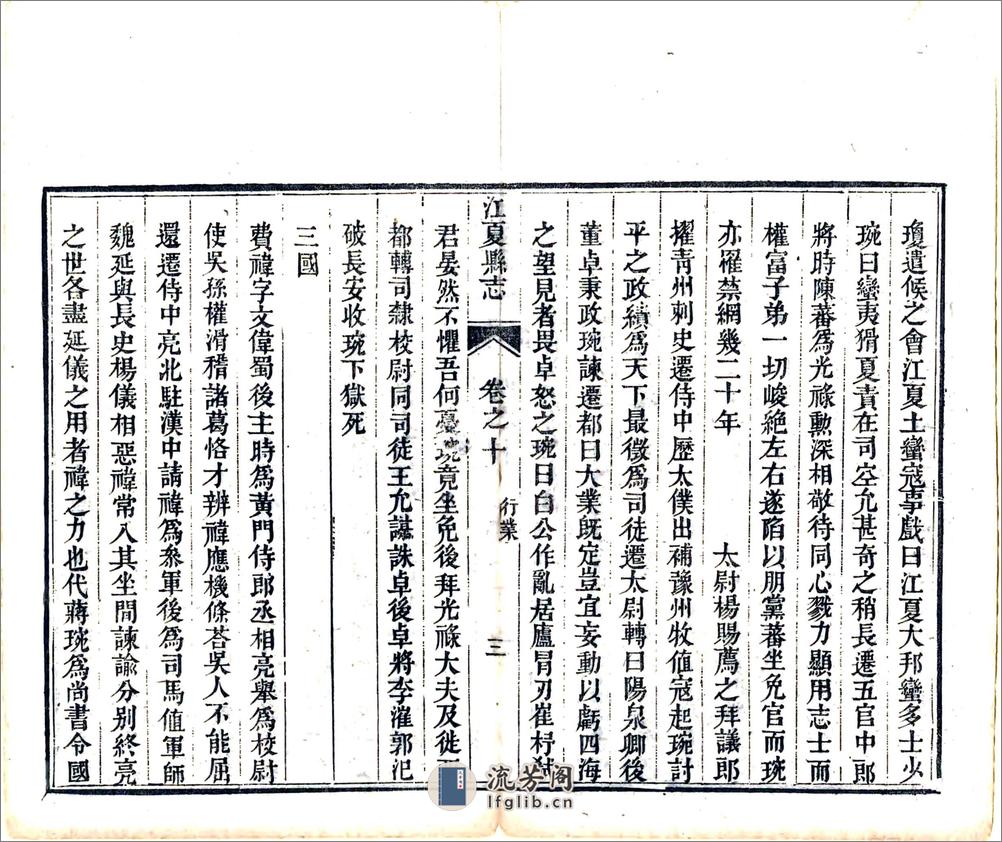 瓊遣候之會江夏土蠻寇事戲曰江夏大邦蠻多士少
琬曰蠻夷猾夏責在司空允甚奇之稍長遷五官中郎
將時陳蕃爲光祿勲深相敬待同心戮力顯用志士而
權富子弟一切峻絕左右遂陷以朋黨蕃坐免官而琬
亦罹禁網幾二十年 太尉楊賜薦之拜議郎
擢靑州刺史遷侍中歷太僕出補豫州牧値寇起琬討
平之政績爲天下最徵爲司徒遷太尉轉曰陽泉卿後
董卓秉政琬諫遷都曰大業既定豈宜妄動以虧四海
之望見者畏卓怒之琬曰白公作亂居廬冒刃崔杼弑
江夏縣志 卷之十 行業 三
君晏然不懼吾何憂琬竟坐免後拜光祿大夫及徙
都轉司隸校尉同司徒王允謀誅卓後卓將李漼郭汜
破長安收琬下獄死
三國
費禕字文偉蜀後主時爲黃門侍郎丞相亮舉爲校尉
使吳孫權滑稽諸葛恪才辨禕應機條荅吳人不能屈
還遷侍中亮北駐漢中請禕爲參軍後爲司馬値軍師
魏延與長史楊儀相惡禕常入其坐間諫諭分別終亮
之世各盡延儀之用者禕之力也代蔣琬爲尚書令國
流芳阁
lfglib.cn